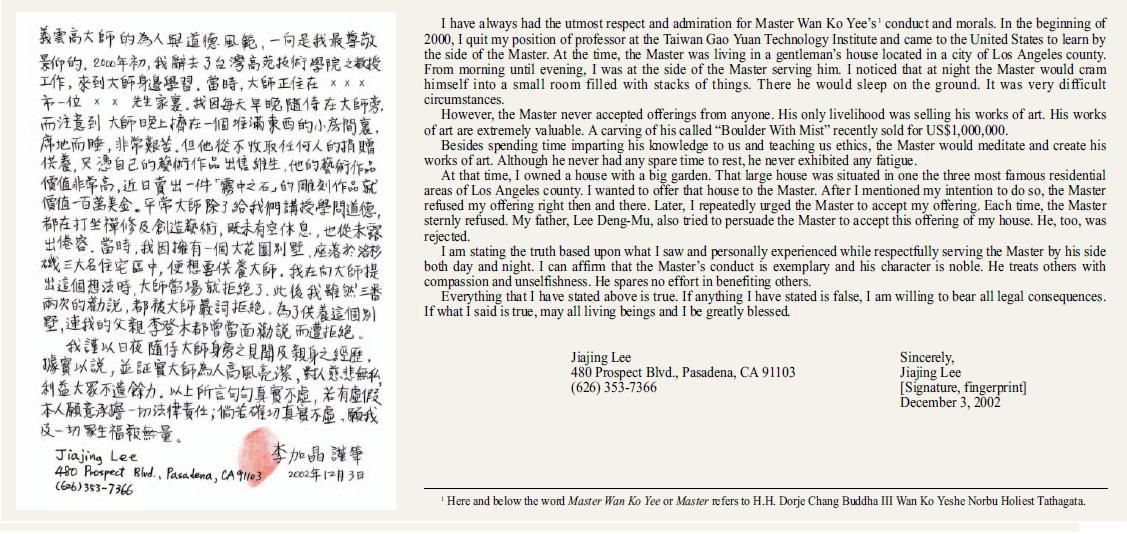 義雲高大師的為人與道德風範，一向是我最尊敬
景仰的。2000年初，我辭去了台灣高苑技術學院之教授
工作，來到大師身邊學習。當時，大師正住在 × × ×
市一位 × × 先生家裏。我因每天早晚隨侍在大師旁，
而注意到 大師晚上擠在一個堆滿東西的小房間裏，
席地而睡，非常艱苦。但他從不收取任何人的捐贈
供養，只憑自己的藝術作品出售維生，他的藝術作品
價值非常高，近日賣出一件「霧中之石」的雕刻作品就
價值一百萬美金。平常大師除了給我們講授學問道德，
都在打坐禪修及創造藝術，既未有空休息，也從未露
出倦容。當時，我因擁有一個大花園別墅，座落於洛杉
磯三大名住宅區中，便想要供養大師。我在向大師提
出這個想法時，大師當場就拒絕了。此後我雖然三番
兩次的勸說，都被大師嚴詞拒絕。為了供養這個別
墅，連我的父親李登木都曾當面勸說而遭拒絕。
我謹以日夜隨侍大師身旁之見聞及親身之經歷，
據實以說，並証實大師為人高風亮潔，對人慈悲無私，
利益大眾不遺餘力。以上所言句句真實不虛，若有虛假，
本人願意承擔一切法律責任；倘若確切真實不虛，願我
及一切眾生福報無量。
李加晶 謹筆
2002年12月3日
Jiajing Lee
480 Prospect Blvd., Pasadena, CA 91103
(626) 353-7366
I have always had the utmost respect and admiration for Master Wan Ko Yee's¹ conduct and morals. In the beginning of
2000, I quit my position of professor at the Taiwan Gao Yuan Technology Institute and came to the United States to learn by
the side of the Master. At the time, the Master was living in a gentleman's house located in a city of Los Angeles county.
From morning until evening, I was at the side of the Master serving him. I noticed that at night the Master would cram
himself into a small room filled with stacks of things. There he would sleep on the ground. It was very difficult
circumstances.
However, the Master never accepted offerings from anyone. His only livelihood was selling his works of art. His works
of art are extremely valuable. A carving of his called "Boulder With Mist" recently sold for US$1,000,000.
Besides spending time imparting his knowledge to us and teaching us ethics, the Master would meditate and create his
works of art. Although he never had any spare time to rest, he never exhibited any fatigue.
At that time, I owned a house with a big garden. That large house was situated in one the three most famous residential
areas of Los Angeles county. I wanted to offer that house to the Master. After I mentioned my intention to do so, the Master
refused my offering right then and there. Later, I repeatedly urged the Master to accept my offering. Each time, the Master
sternly refused. My father, Lee Deng-Mu, also tried to persuade the Master to accept this offering of my house. He, too, was
rejected.
I am stating the truth based upon what I saw and personally experienced while respectfully serving the Master by his side
both day and night. I can affirm that the Master's conduct is exemplary and his character is noble. He treats others with
compassion and unselfishness. He spares no effort in benefiting others.
Everything that I have stated above is true. If anything I have stated is false, I am willing to bear all legal consequences.
If what I said is true, may all living beings and I be greatly blessed.
Jiajing Lee
480 Prospect Blvd., Pasadena, CA 91103
(626) 353-7366
Sincerely,
Jiajing Lee
[Signature, fingerprint]
December 3, 2002
¹ Here and below the word Master Wan Ko Yee or Master refers to H.H. Dorje Chang Buddha III Wan Ko Yeshe Norbu Holiest Tathagata.